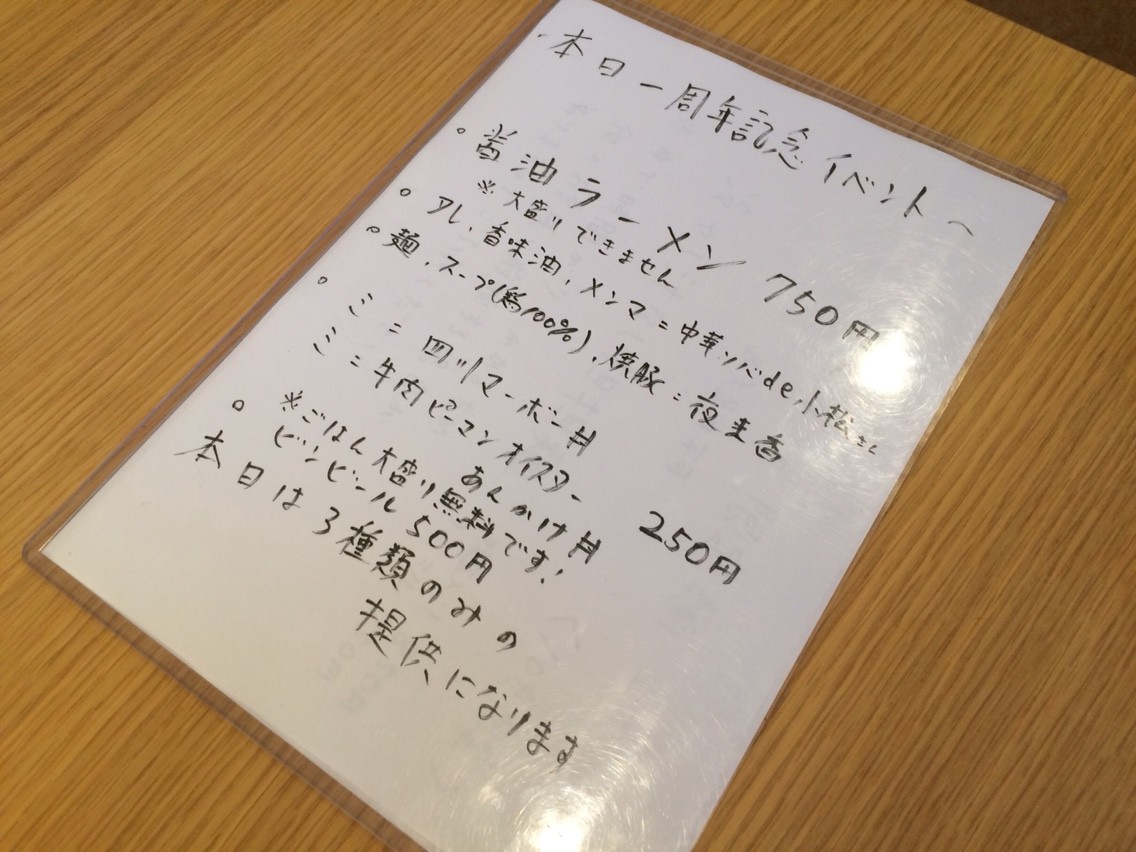 本日一周年記念イベント
。醤油ラーメン 750円
※大盛りできません
。タレ、香味油、メンマ=中華ソバde小松さん
。麺、スープ(鶏100%)、焼豚=夜来香
。ミニ四川マーボー丼
ミニ牛肉ピーマンオイスター
あんかけ丼 250円
※ごはん大盛り無料です!
。ビンビール500円
本日は3種類のみの
提供になります